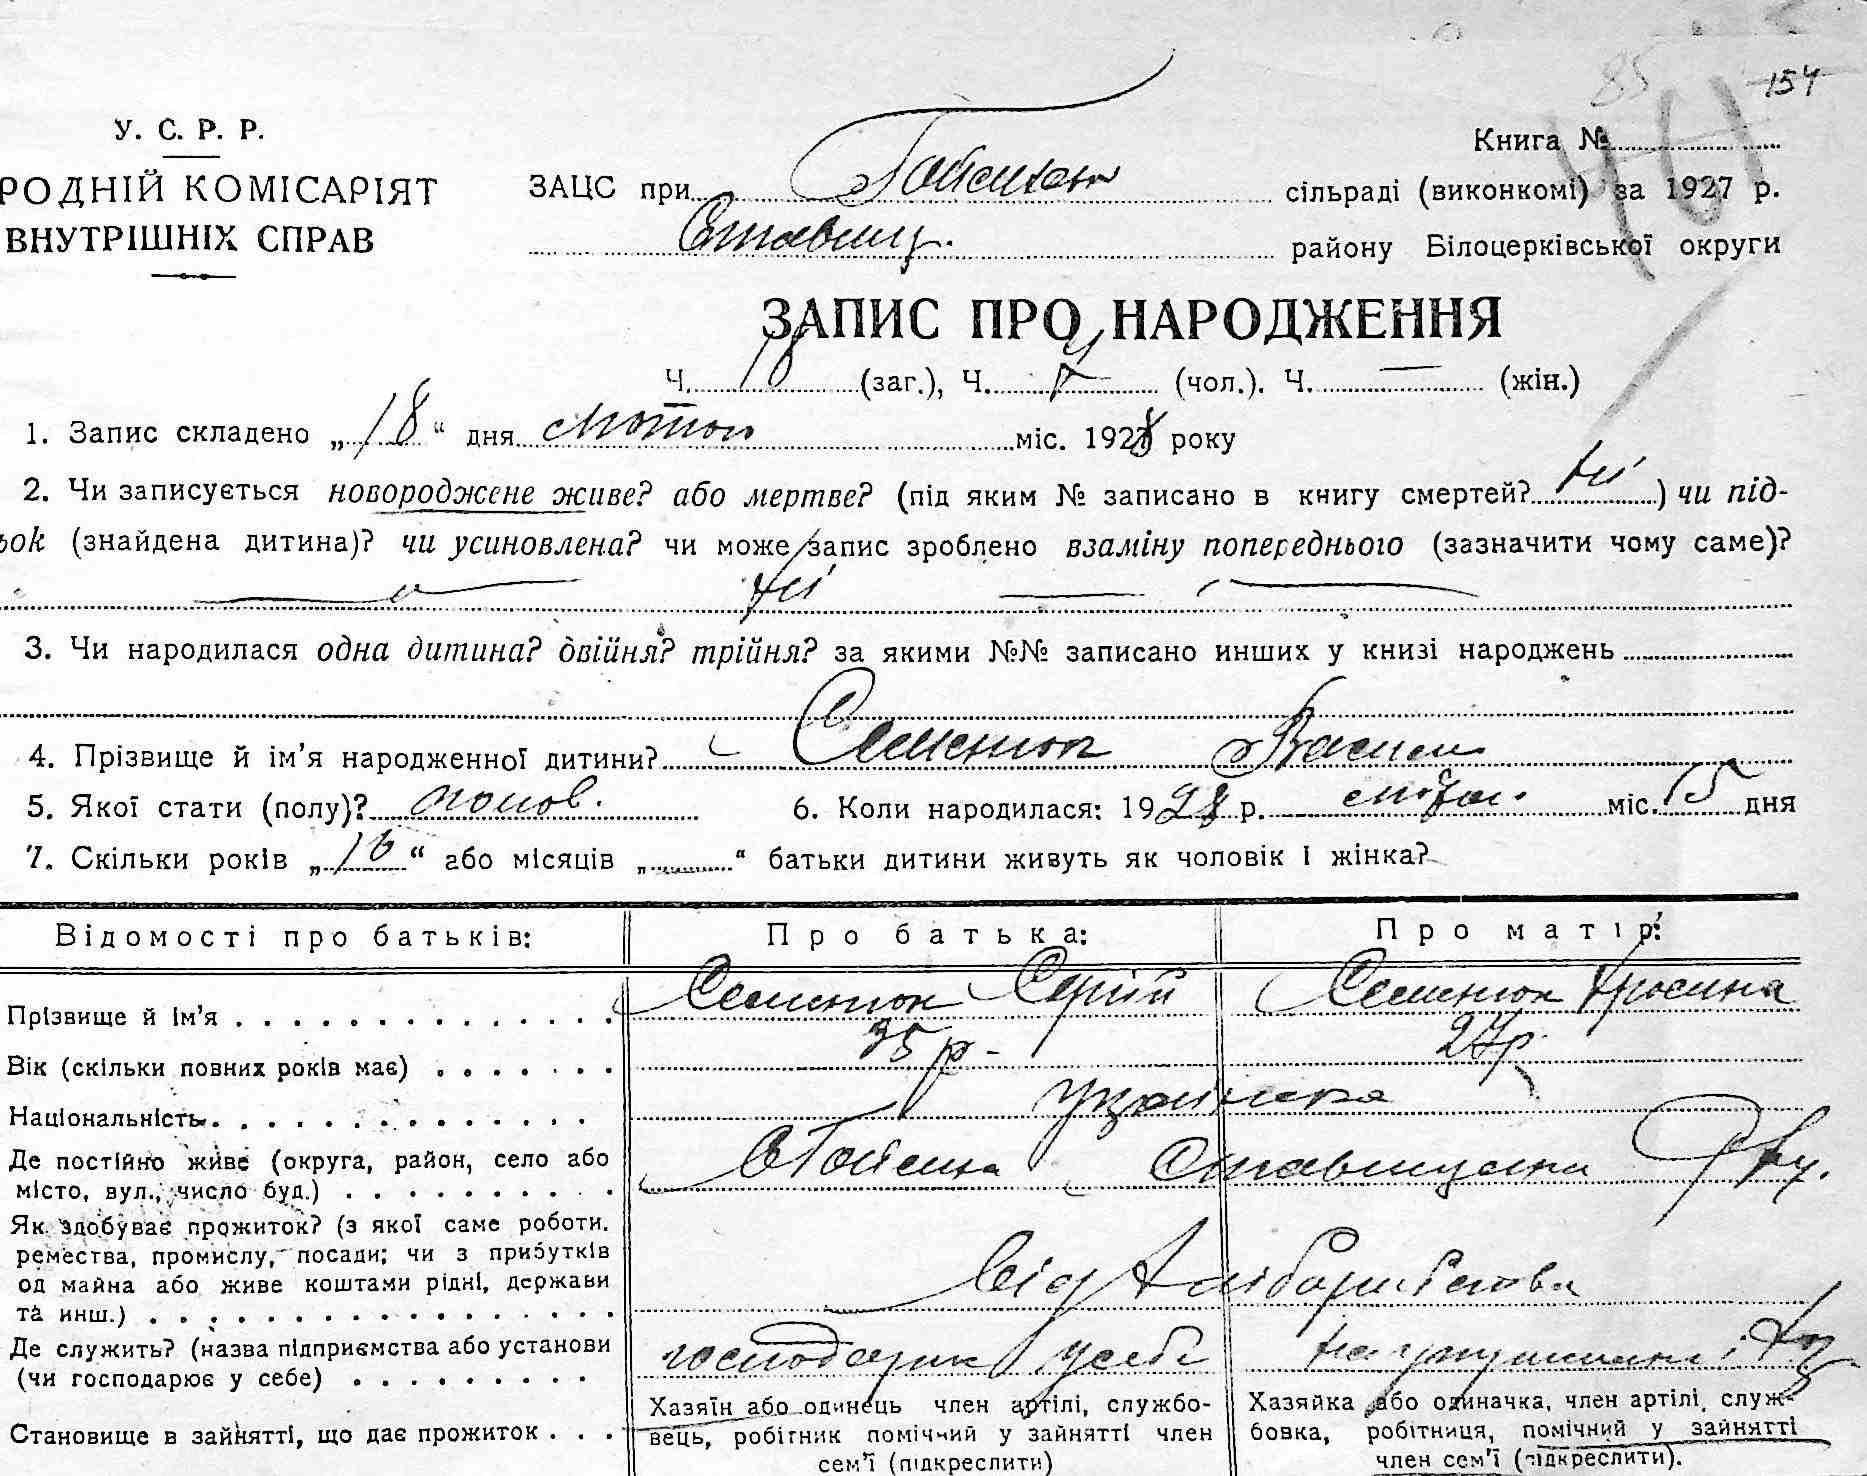 85 154
У. С. Р. Р.
Книга №
РОДНІЙ КОМІСАРІЯТ
ЗАЦС при сільраді (виконкомі) за 1927 р.
ВНУТРІШНІХ СПРАВ
Ставищ. району Білоцерківської округи
ЗАПИС ПРО НАРОДЖЕННЯ
Ч. 18 (заг.), Ч. (чол.). Ч. — (жін.)
1. Запис складено „18“ дня лютого міс. 1928 року
2. Чи записується новороджене живе? або мертве? (під яким № записано в книгу смертей? ні) чи під-
ьок (знайдена дитина)? чи усиновлена? чи може запис зроблено взаміну попереднього (зазначити чому саме)?
ні
3. Чи народилася одна дитина? двійня? трійня? за якими №№ записано инших у книзі народжень
4. Прізвище й ім'я народженної дитини? Семенюк Василь
5. Якої стати (полу)? чолов. 6. Коли народилася: 1928 р. лютого міс. 15 дня
7. Скільки років „16“ або місяців „ “ батьки дитини живуть як чоловік і жінка?
Відомості про батьків: Про батька: Про матір:
Прізвище й ім'я Семенюк Сергій Семенюк Фросина
Вік (скільки повних років має) 35 р. 27 р.
Національність українська
Де постійно живе (округа, район, село або
місто, вул., число буд.) Ставищський
Як здобуває прожиток? (з якої саме роботи.
ремества, промислу, посади; чи з прибутків
од майна або живе коштами рідні, держави
та инш.) від хліборобства
Де служить? (назва підприємства або установи
(чи господарює у себе) господарює у себе на утриманні
Становище в зайнятті, що дає прожиток
Хазяїн або одинець член артілі, службо-
вець, робітник помічний у зайнятті член
сем'ї (підкреслити)
Хазяйка або одиначка, член артілі, служ-
бовка, робітниця, помічний у зайнятті
член сем'ї (підкреслити).